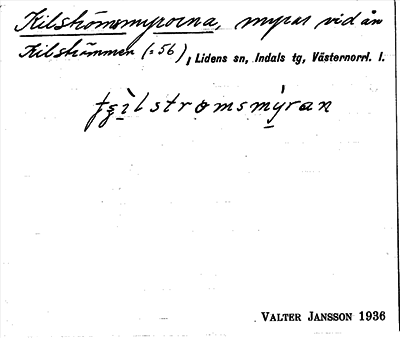 Kilströmsmyrorna, myrar vid ån
Kilströmmen (:56), Lidens sn, Indals tg, Västernorrl. l.
tʂìlstromsmýran
VALTER JANSSON 1936